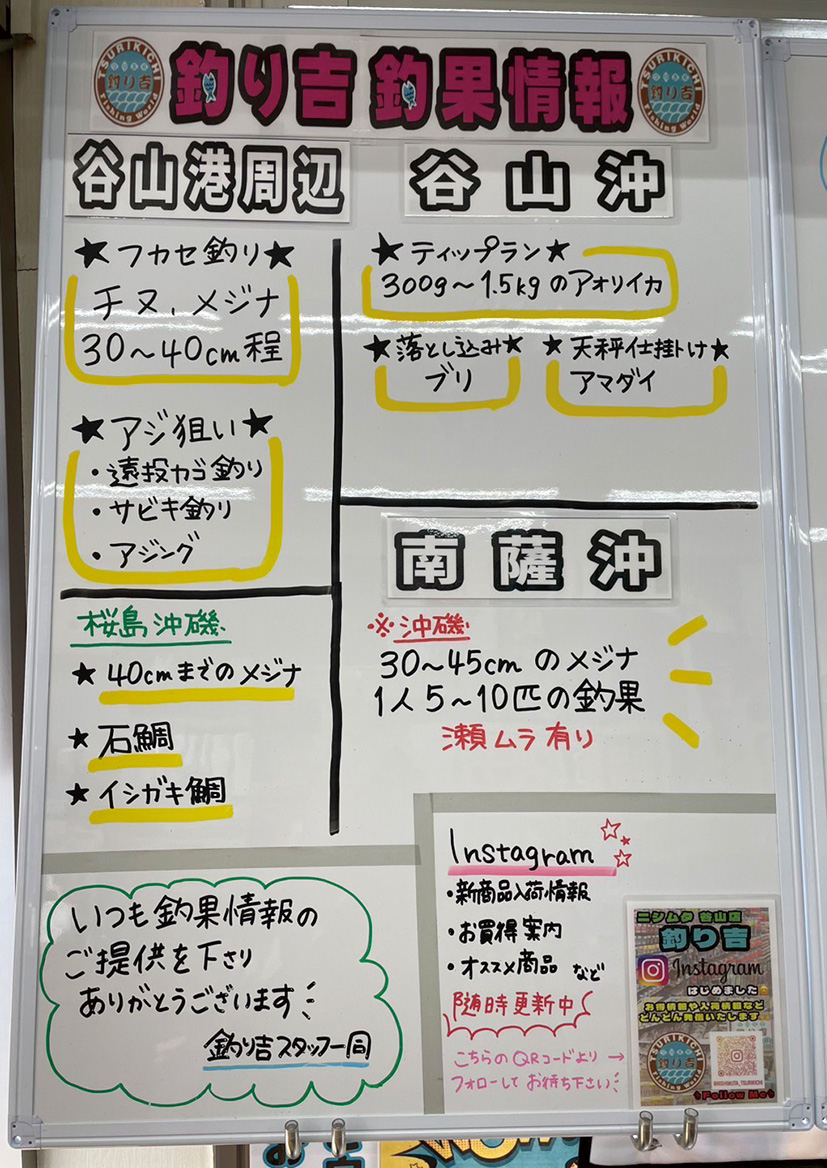 釣り吉 釣果情報
TSURIKICHI
釣り吉
Fishing World
TSURIKICHI
釣り吉
Fishing World
谷山港周辺
★フカセ釣り★
チヌ、メジナ
30～40cm程
★アジ狙い★
・遠投カゴ釣り
・サビキ釣り
・アジング
桜島沖磯
★40cmまでのメジナ
★石鯛
★イシガキ鯛
谷山沖
★ティップラン★
300g～1.5kgのアオリイカ
★落とし込み★
ブリ
★天秤仕掛け★
アマダイ
南薩沖
※沖磯
30～45cmのメジナ
1人5～10匹の釣果
瀬ムラ有り
いつも釣果情報の
ご提供を下さり
ありがとうございます
釣り吉スタッフ一同
Instagram
・新商品入荷情報
・お買得案内
・オススメ商品 など
随時更新中
こちらのQRコードより→
フォローしてお待ち下さい
ニシムタ 谷山店
釣り吉
Instagram
はじめました
お得情報や入荷情報など
どんどん発信いたします
TSURIKICHI
釣り吉
Fishing World
@NISHIMUTA_TSURIKICHI
Follow Me